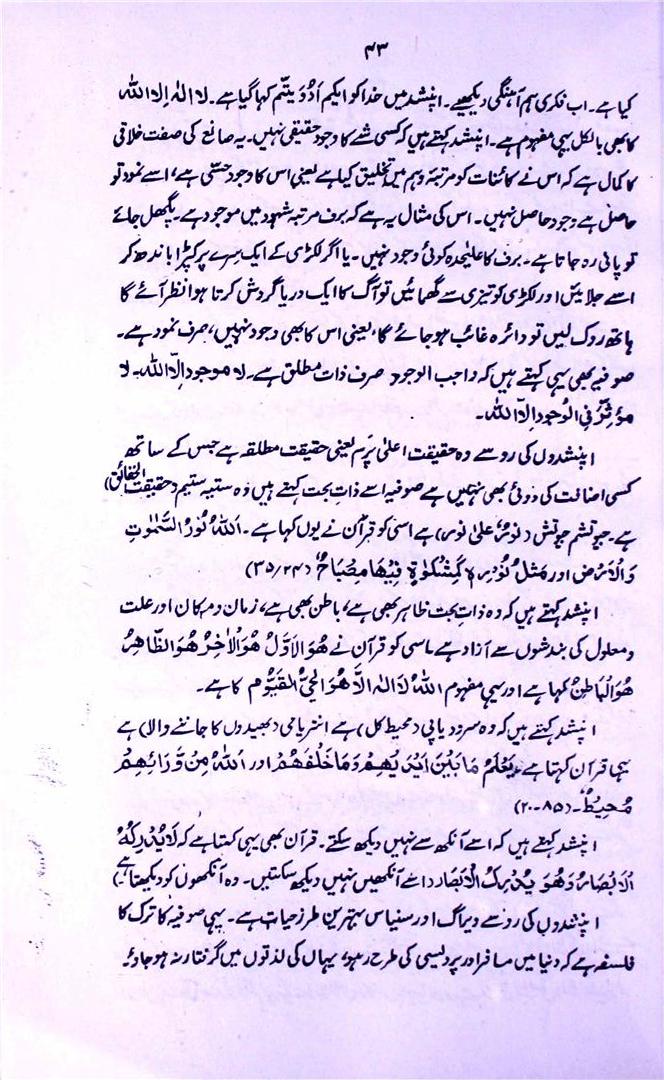 ۴۳
کیا ہے۔ اب فکری ہم آہنگی دیکھیے۔ اپنشد میں خدا کو ایکم اَدْوِیتم کہا گیا ہے۔ لا الٰہ الا اللہ
کا بھی بالکل یہی مفہوم ہے۔ اپنشد کہتے ہیں کہ کسی شے کا وجود حقیقی نہیں۔ یہ صانع کی صفت خلاقی
کا کمال ہے کہ اس نے کائنات کو مرتبۂ وہم میں تخلیق کیا ہے یعنی اس کا وجود حسّی ہے، اسے نمود تو
حاصل ہے وجود حاصل نہیں۔ اس کی مثال یہ ہے کہ برف مرتبہ شہود میں موجود ہے۔ پگھل جائے
تو پانی رہ جاتا ہے۔ برف کا علیحدہ کوئی وجود نہیں۔ یا اگر لکڑی کے ایک سرے پر کپڑا باندھ کر
اسے جلائیں اور لکڑی کو تیزی سے گھمائیں تو آگ کا ایک دریا گردش کرتا ہوا نظر آئے گا
ہاتھ روک لیں تو دائرہ غائب ہو جائے گا، یعنی اس کا بھی وجود نہیں، صرف نمود ہے۔
صوفیہ بھی یہی کہتے ہیں کہ واجب الوجود صرف ذات مطلق ہے۔ لا موجود الّا اللہ۔ لا
مؤثرٌ فی الوجود الّا اللہ۔
اپنشدوں کی رو سے وہ حقیقت اعلیٰ پرَم یعنی حقیقت مطلقہ ہے جس کے ساتھ
کسی اضافت کی دوئی بھی نہیں ہے صوفیہ اسے ذاتِ بحت کہتے ہیں وہ ستیہ ستیم (حقیقت الحقائق)
ہے۔ جیوتشم جیوتش (نورٌ علیٰ نور) ہے اسی کو قرآن نے یوں کہا ہے۔ اَللہُ نُورُ السَّمٰوٰتِ
وَالْاَرْضِ اور مَثَلُ نُوْرِہٖ کَمِشْکٰوۃٍ فِیْھَا مِصْبَاحٌ (۲۴/۳۵)
اپنشد کہتے ہیں کہ وہ ذات بحت ظاہر بھی ہے، باطن بھی ہے، زمان و مکان اور علت
و معلول کی بندشوں سے آزاد ہے ماسی کو قرآن نے ھُوَ الْاَوَّلُ ھُوَ الْاٰخِرُ ھُوَ الظَّاھِرُ
ھُوَ الْبَاطِنُ کہا ہے اور یہی مفہوم اَللہُ لَا اِلٰہَ اِلَّا ھُوَ الْحَیُّ الْقَیُّوْم کا ہے۔
اپنشد کہتے ہیں کہ وہ سرو ویاپی (محیط کل) ہے انتریامی (بھیدوں کا جاننے والا) ہے
یہی قرآن کہتا ہے یَعْلَمُ مَا بَیْنَ اَیْدِیْھِمْ وَمَا خَلْفَھُمْ اور اَللہُ مِنْ وَّرَائِھِمْ
مُحِیْطٌ۔ (۸۵-۲۰)
اپنشد کہتے ہیں کہ اسے آنکھ سے نہیں دیکھ سکتے۔ قرآن بھی یہی کہتا ہے کہ لَا یُدْرِکُہُ
الْاَبْصَارُ وَھُوَ یُدْرِکُ الْاَبْصَار (اسے آنکھیں نہیں دیکھ سکتیں۔ وہ آنکھوں کو دیکھتا ہے)
اپنشدوں کی رو سے ویراگ اور سنیاس بہترین طرز حیات ہے۔ یہی صوفیہ کا ترک کا
فلسفہ ہے کہ دنیا میں مسافر اور پردیسی کی طرح رہو، یہاں کی لذتوں میں گرفتار نہ ہو جاؤ